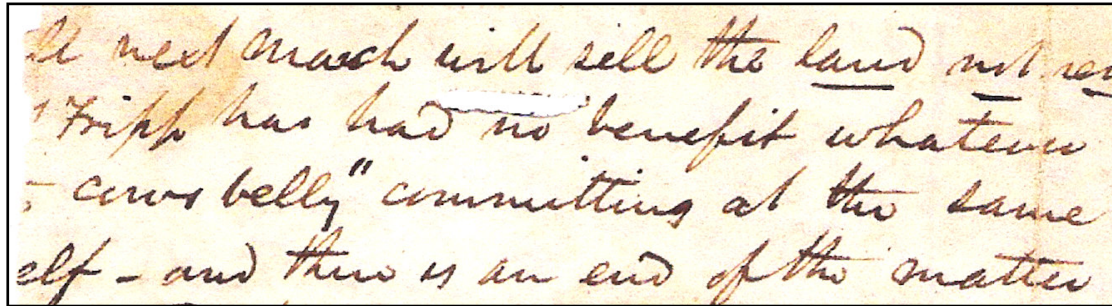 next March will sell the land not
Fripp has had no benefit whatever
cows belly" committing at the same
elf - and there is an end of the matter